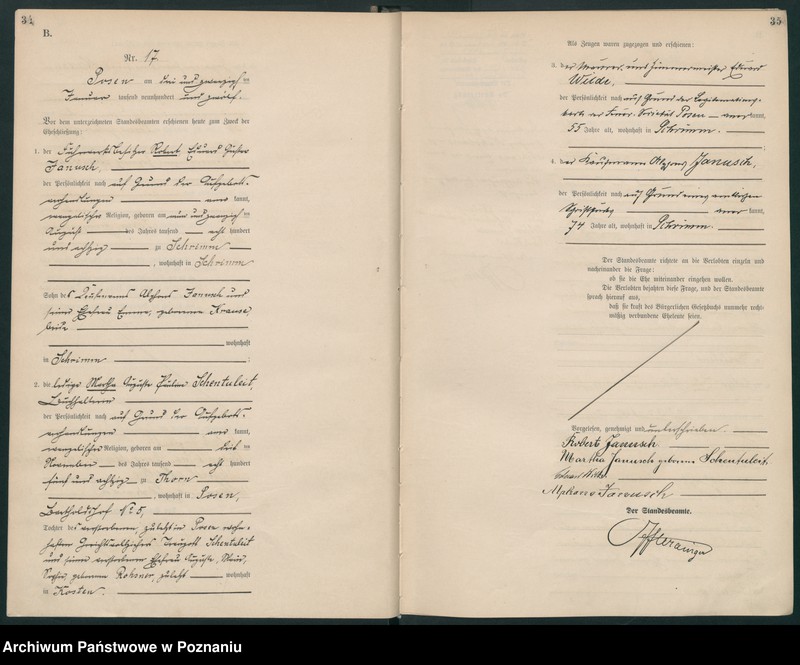 34
B.
Nr. 17
Posen am drei und zwanzigsten
Januar tausend neunhundert und zwölf.
Vor dem unterzeichneten Standesbeamten erschienen heute zum Zweck der
Eheschließung:
1. der Robert Eduard
Janusch,
der Persönlichkeit nach auf Grund der Aufgebots-
verhandlungen kannt,
evangelischer Religion, geboren am
August des Jahres tausend acht hundert
und achtzig zu Schrimm
, wohnhaft in Schrimm
Sohn des Kaufmanns Alphons Janusch und
seiner Ehefrau Emma, geborene Krause
beide
wohnhaft
in Schrimm ;
2. die ledige Martha Auguste Pauline Schentuleit,
Buchhalterin
der Persönlichkeit nach auf Grund der Aufgebots-
verhandlungen kannt,
evangelischer Religion, geboren am
November des Jahres tausend acht hundert
fünf und achtzig zu Thorn
, wohnhaft in Posen,
Bertholdshof No 5,
Tochter des verstorbenen, zuletzt in Posen wohn-
haften Gerichtsvollziehers Schentuleit
und seiner verstorbenen Ehefrau Auguste, Marie,
geborene Rohmer, zuletzt wohnhaft
in Kosten.
35
Als Zeugen waren zugezogen und erschienen:
3. der Maurer- und Zimmermeister Eduard
Wilde,
der Persönlichkeit nach auf Grund der
Posen kannt,
55 Jahre alt, wohnhaft in Schrimm.
;
4. der Kaufmann Alphons Janusch,
der Persönlichkeit nach auf Grund eines amtlichen
Schriftstücks kannt,
74 Jahre alt, wohnhaft in Schrimm.
Der Standesbeamte richtete an die Verlobten einzeln und
nacheinander die Frage:
ob sie die Ehe miteinander eingehen wollen.
Die Verlobten bejahten diese Frage, und der Standesbeamte
sprach hierauf aus,
daß sie kraft des Bürgerlichen Gesetzbuchs nunmehr recht-
mäßig verbundene Eheleute seien.
Vorgelesen, genehmigt und unterschrieben.
Robert Janusch
Martha Janusch geborene Schentuleit.
Eduard Wilde
Alphons Janusch
Der Standesbeamte.
Archiwum Państwowe w Poznaniu